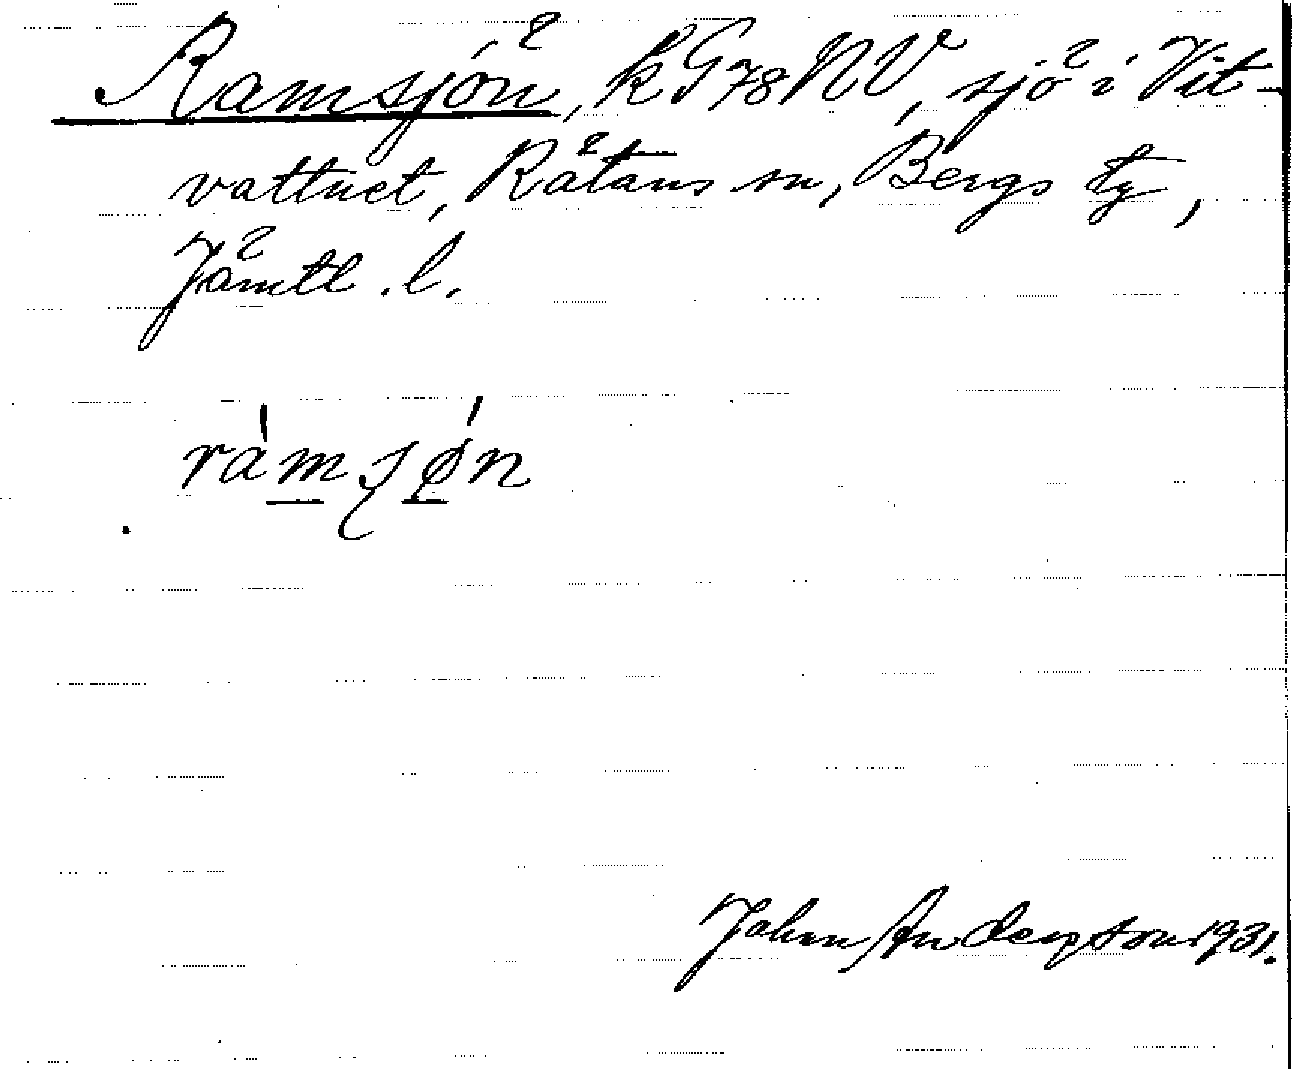 Ramsjön, kG78NV, sjö i Vit-
vattnet, Rätans sn, Bergs tg,
Jämtl. l.
ràmʂǿn
John Anderson 1931.